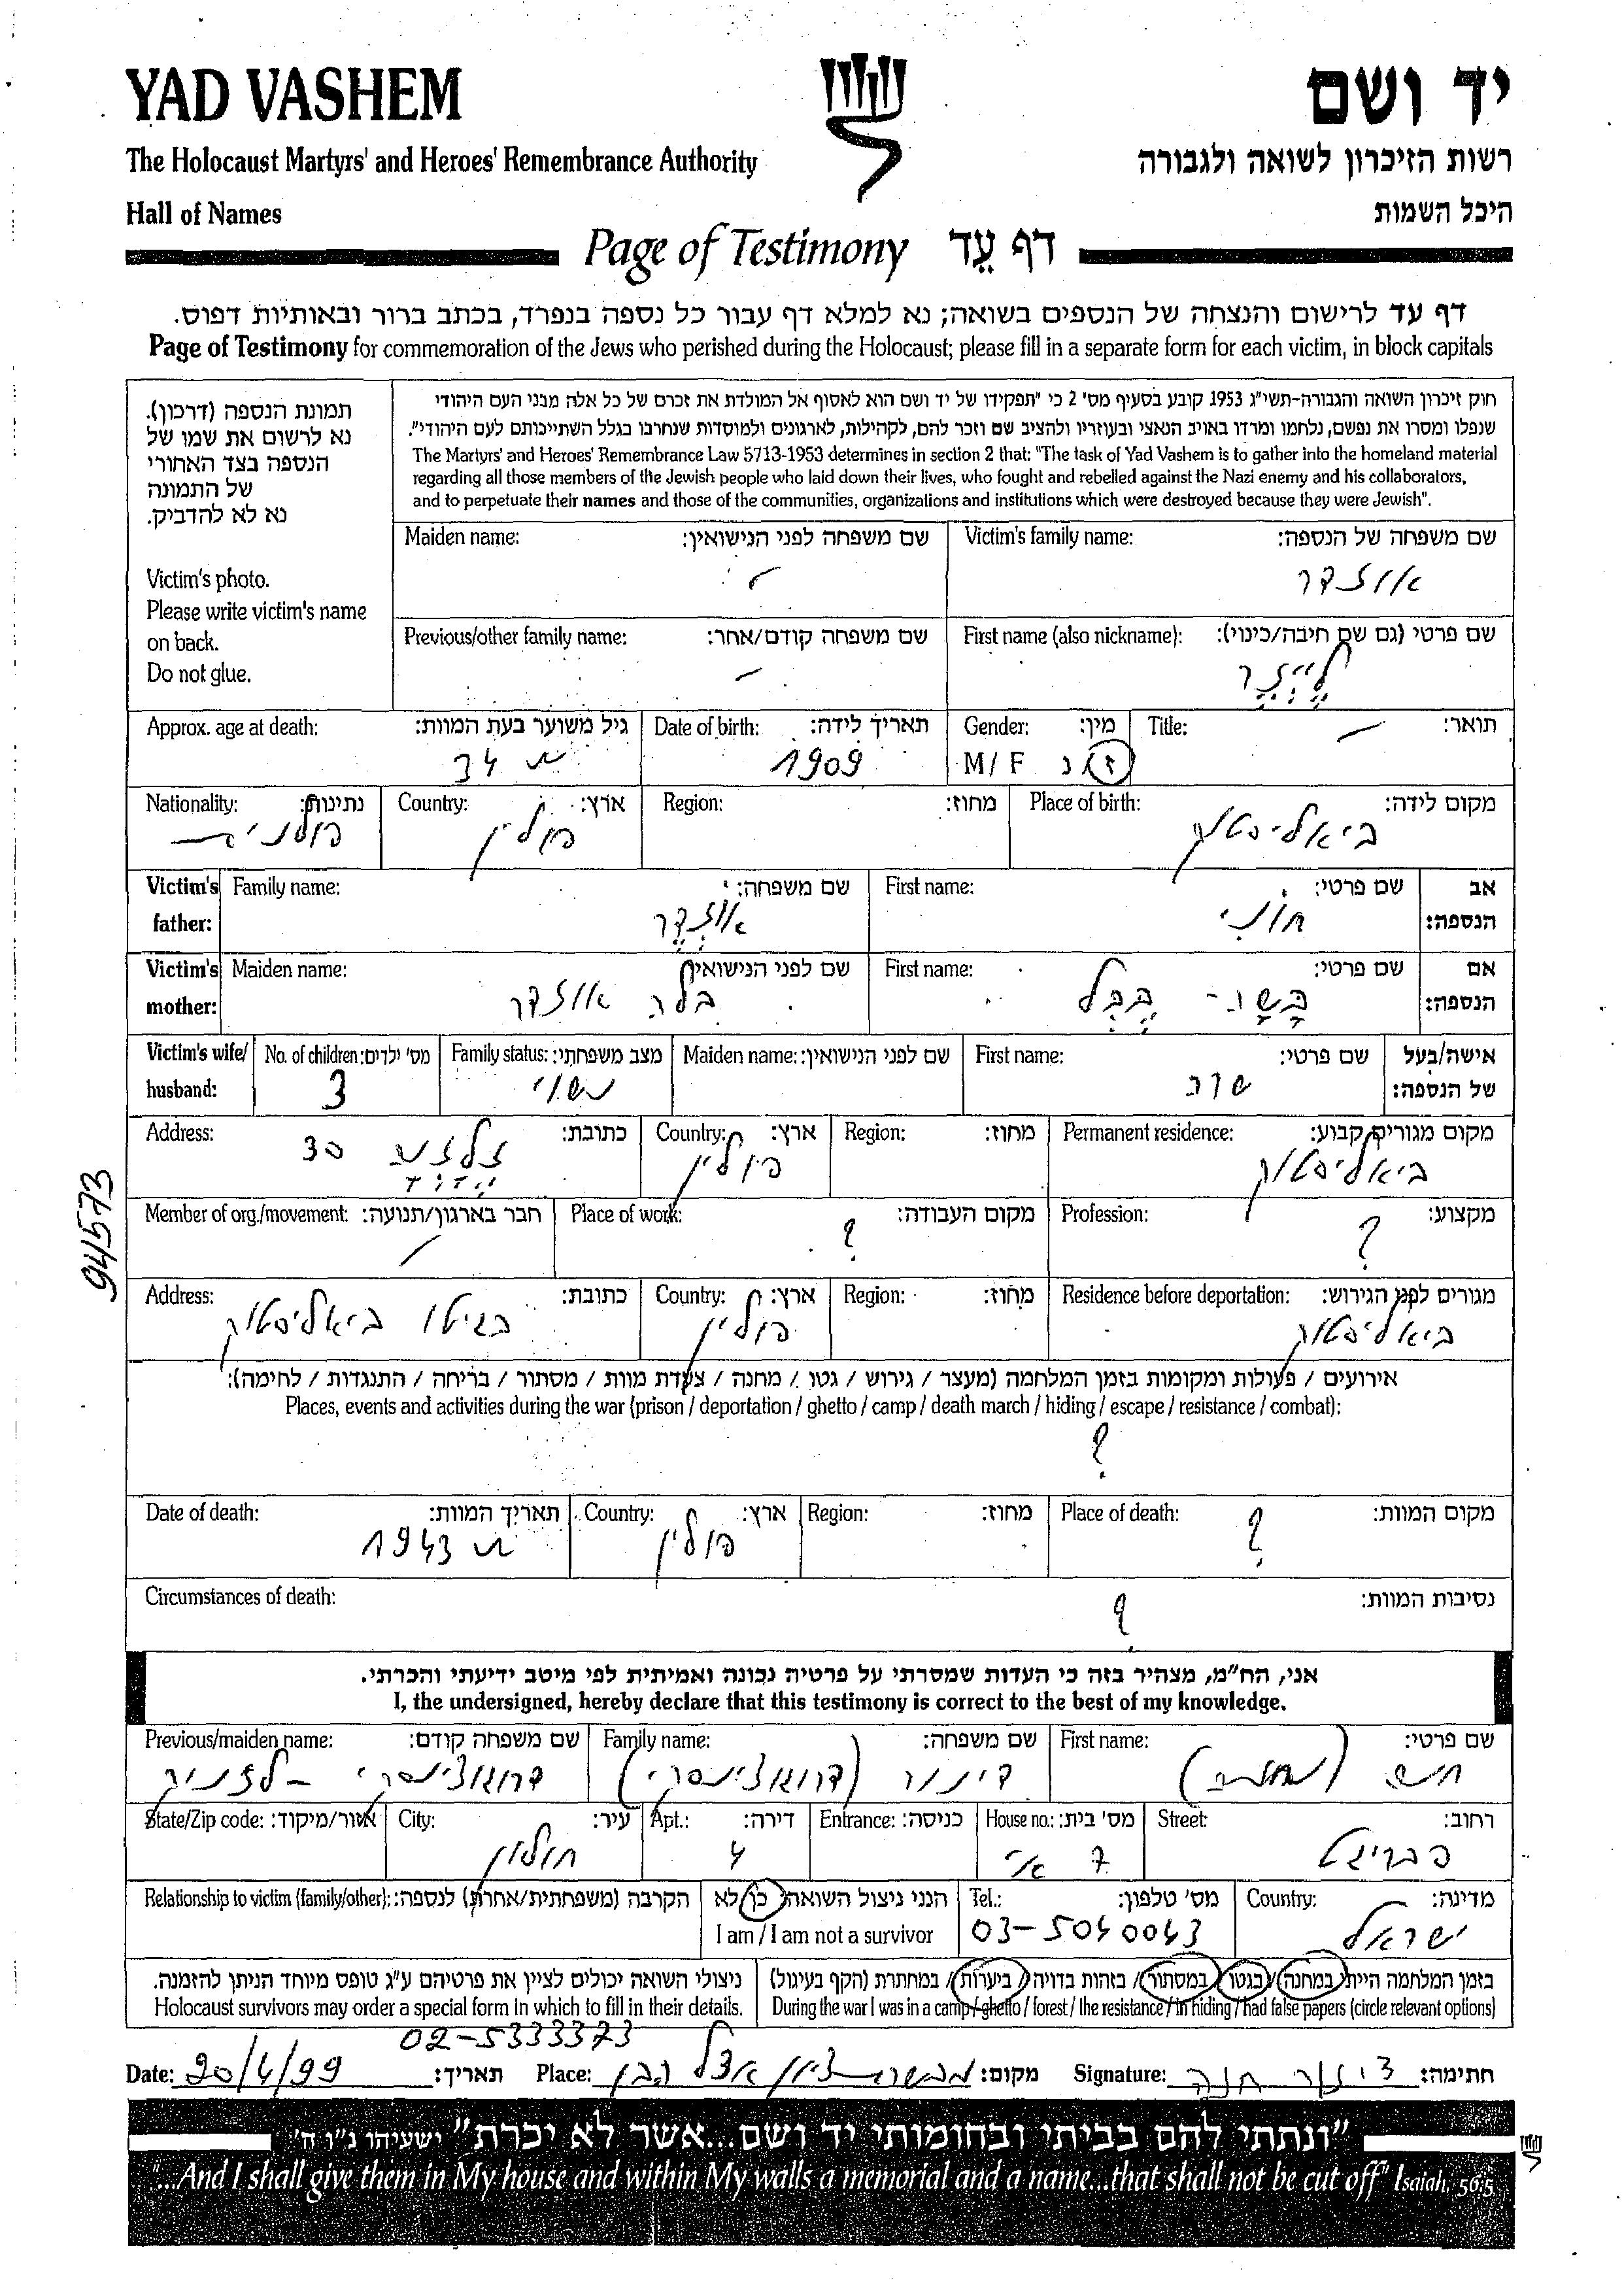 YAD VASHEM
יד ושם
The Holocaust Martyrs' and Heroes' Remembrance Authority
רשות הזיכרון לשואה ולגבורה
Hall of Names
היכל השמות
Page of Testimony דף עֵד
דף עד לרישום והנצחה של הנספים בשואה; נא למלא דף עבור כל נספה בנפרד, בכתב ברור ובאותיות דפוס.
Page of Testimony for commemoration of the Jews who perished during the Holocaust; please fill in a separate form for each victim, in block capitals
תמונת הנספה (דרכון).
נא לרשום את שמו של
הנספה בצד האחורי
של התמונה
נא לא להדביק.
Victim's photo.
Please write victim's name
on back.
Do not glue.
חוק זיכרון השואה והגבורה-תשי"ג 1953 קובע בסעיף מס' 2 כי "תפקידו של יד ושם הוא לאסוף אל המולדת את זכרם של כל אלה מבני העם היהודי
שנפלו ומסרו את נפשם, נלחמו ומרדו באויב הנאצי ובעוזריו ולהציב שם וזכר להם, לקהילות, לארגונים ולמוסדות שנחרבו בגלל השתייכותם לעם היהודי".
The Martyrs' and Heroes' Remembrance Law 5713-1953 determines in section 2 that: "The task of Yad Vashem is to gather into the homeland material
regarding all those members of the Jewish people who laid down their lives, who fought and rebelled against the Nazi enemy and his collaborators,
and to perpetuate their names and those of the communities, organizations and institutions which were destroyed because they were Jewish".
Maiden name: שם משפחה לפני הנישואין: Victim's family name: שם משפחה של הנספה:
אוזדר
Previous/other family name: שם משפחה קודם/אחר: First name (also nickname): שם פרטי (גם שם חיבה/כינוי):
לייזר
Approx. age at death: גיל משוער בעת המוות: Date of birth: תאריך לידה: Gender: מין: Title: תואר:
34 1909 M / F ז / נ
Nationality: נתינות: Country: ארץ: Region: מחוז: Place of birth: מקום לידה:
פולנית פולין ביאליסטוק
Victim's father: Family name: שם משפחה: First name: שם פרטי: אב הנספה:
אוזדר חוני
Victim's mother: Maiden name: שם לפני הנישואין: First name: שם פרטי: אם הנספה:
אוזדר בשה-
Victim's wife/ husband: No. of children: מס' ילדים: Family status: מצב משפחתי: Maiden name: שם לפני הנישואין: First name: שם פרטי: אישה/בעל של הנספה:
3 נשוי שרה
Address: כתובת: Country: ארץ: Region: מחוז: Permanent residence: מקום מגורים קבוע:
30 פולין ביאליסטוק
Member of org./movement: חבר בארגון/תנועה: Place of work: מקום העבודה: Profession: מקצוע:
? ?
Address: כתובת: Country: ארץ: Region: מחוז: Residence before deportation: מגורים לפני הגירוש:
בגיטו ביאליסטוק פולין ביאליסטוק
אירועים / פעולות ומקומות בזמן המלחמה (מעצר / גירוש / גטו / מחנה / צעדת מוות / מסתור / בריחה / התנגדות / לחימה):
Places, events and activities during the war (prison / deportation / ghetto / camp / death march / hiding / escape / resistance / combat):
?
Date of death: תאריך המוות: Country: ארץ: Region: מחוז: Place of death: מקום המוות:
1943 פולין ?
Circumstances of death: נסיבות המוות:
?
אני, הח"מ, מצהיר בזה כי העדות שמסרתי על פרטיה נכונה ואמיתית לפי מיטב ידיעתי והכרתי.
I, the undersigned, hereby declare that this testimony is correct to the best of my knowledge.
Previous/maiden name: שם משפחה קודם: Family name: שם משפחה: First name: שם פרטי:
דינור
State/Zip code: אזור/מיקוד: City: עיר: Apt.: דירה: Entrance: כניסה: House no.: מס' בית: Street: רחוב:
חולון 4 7 הבריגל
Relationship to victim (family/other): הקרבה (משפחתית/אחרת) לנספה: הנני ניצול השואה: כן / לא Tel.: מס' טלפון: Country: מדינה:
I am / I am not a survivor 03-5040043 ישראל
ניצולי השואה יכולים לציין את פרטיהם ע"ג טופס מיוחד הניתן להזמנה. בזמן המלחמה הייתי במחנה / בגטו / במסתור / בזהות בדויה / ביערות / במחתרת (הקף בעיגול)
Holocaust survivors may order a special form in which to fill in their details. During the war I was in a camp / ghetto / forest / the resistance / in hiding / had false papers (circle relevant options)
02-5333373
Date: 20/4/99 תאריך: Place: מבשרת ציון אצל הבן מקום: Signature: דינור חנה חתימה:
"ונתתי להם בביתי ובחומותי יד ושם...אשר לא יכרת" ישעיהו נ"ו ה'
"...And I shall give them in My house and within My walls a memorial and a name...that shall not be cut off" Isaiah, 56:5
94573